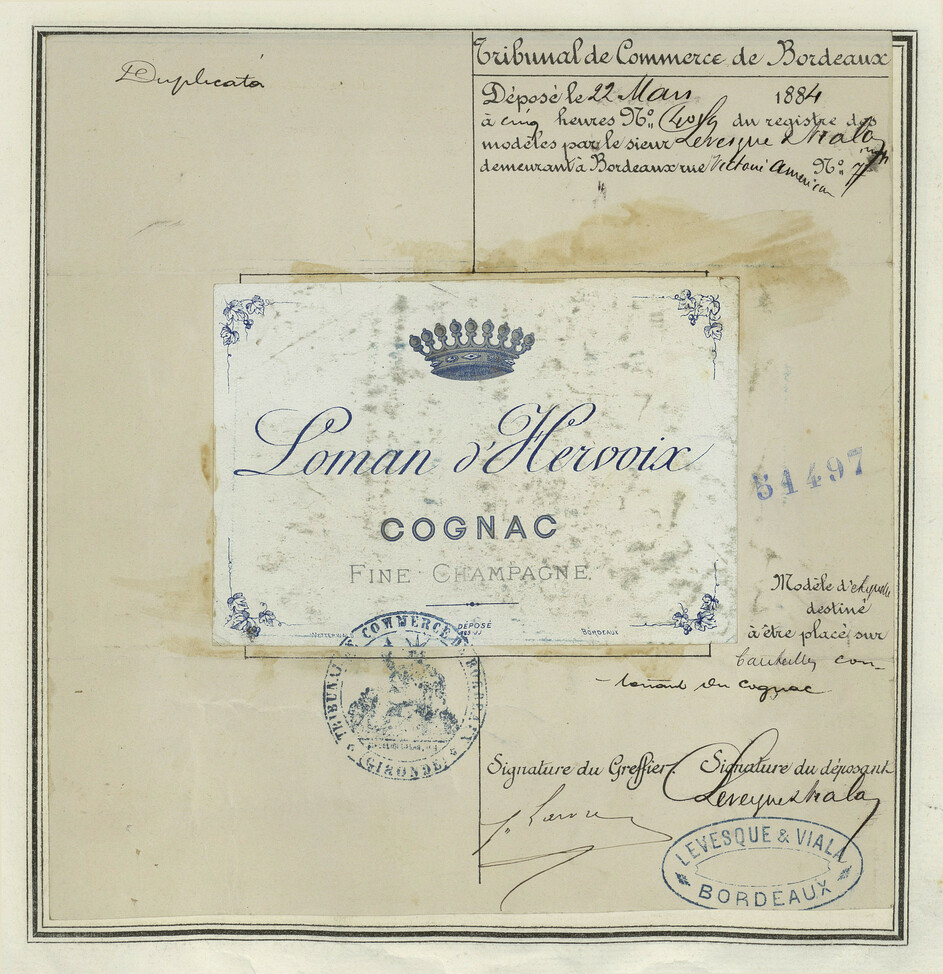 Duplicata
Tribunal de Commerce de Bordeaux
Déposé le 22 Mars 1884
à cinq heures Nº du registre des
modèles par le sieur Levesque & Viala
demeurant à Bordeaux rue Nº 7
Loman d'Hervoix
COGNAC
FINE CHAMPAGNE
DÉPOSÉ
BORDEAUX
51497
Modèle d'etiquette
destiné
à être placé sur
bouteilles con-
tenant du cognac
TRIBUNAL DE COMMERCE DE BORDEAUX
GIRONDE
Signature du Greffier. Signature du déposant
Levesque & Viala
LEVESQUE & VIALA
BORDEAUX